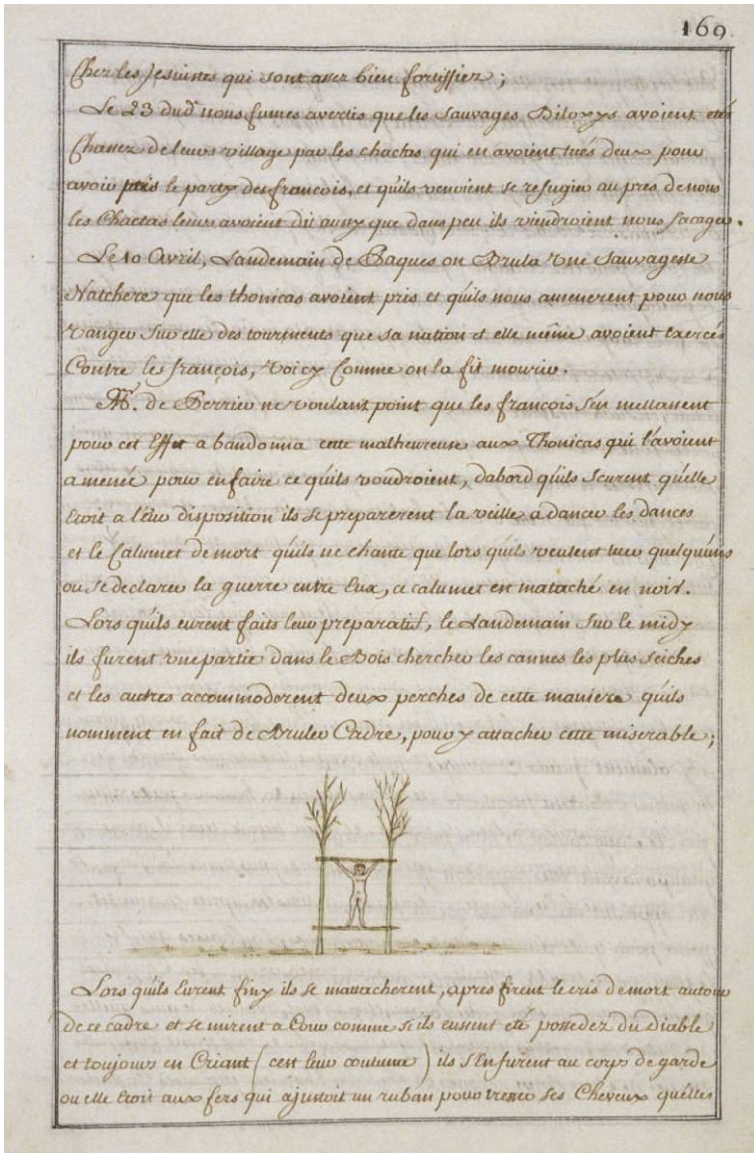 169.
Chez les Jesuistes qui sont assez bien fortiffiez;
Le 23 dud. nous fumes avertis que les Sauvages Biloxys avoient etés
Chassez de leurs village par les chactas qui en avoient tués deux pour
avoir pris le party des francois, et qu'ils venoient se refugier au pres de nous
les Chactas leurs avoient dit aussy que dans peu ils viendroient nous sacager.
Le 10 Avril, Landemain de Paques on Brula Une Sauvagesse
Natcheze que les thonicas avoient pris et qu'ils nous amenerent pour nous
vanger sur elle des tourments que sa nation et elle même avoient Exercés
Contre les françois, voicy Comme on la fit mourir.
M. de Perrier ne voulant point que les francois s'en mellassent
pour cet Effet abandonna cette malheureuse aux Thonicas qui l'avoient
amenée pour en faire ce qu'ils voudroient, dabord qu'ils sceurent qu'elle
Etoit a leur disposition ils se preparerent la veille a dancer les dances
et le Calumet de mort qu'ils ne chante que lors qu'ils veulent tuer quelqu'uns
ou se declarer la guerre entre Eux, ce calumet en mataché en noir.
Lors qu'ils eurent faits leur preparatif, le Landemain sur le midy
ils furent une partie dans le Bois chercher les cannes les plus seiches
et les autres accommoderent deux perches de cette maniere qu'ils
nomment en fait de Bruler Cadre, pour y attacher cette miserable;
Lors qu'ils Eurent finy ils se matacherent, apres firent le cris de mort autour
de ce cadre et se mirent a Courr comme si ils eussent eté possedez du Diable
et toujours en Criant (cest leur coutume) ils s'Enfurent au corps de garde
ou elle Etoit aux fers qui ajustoit un ruban pour tresser ses Cheveux qu'elles